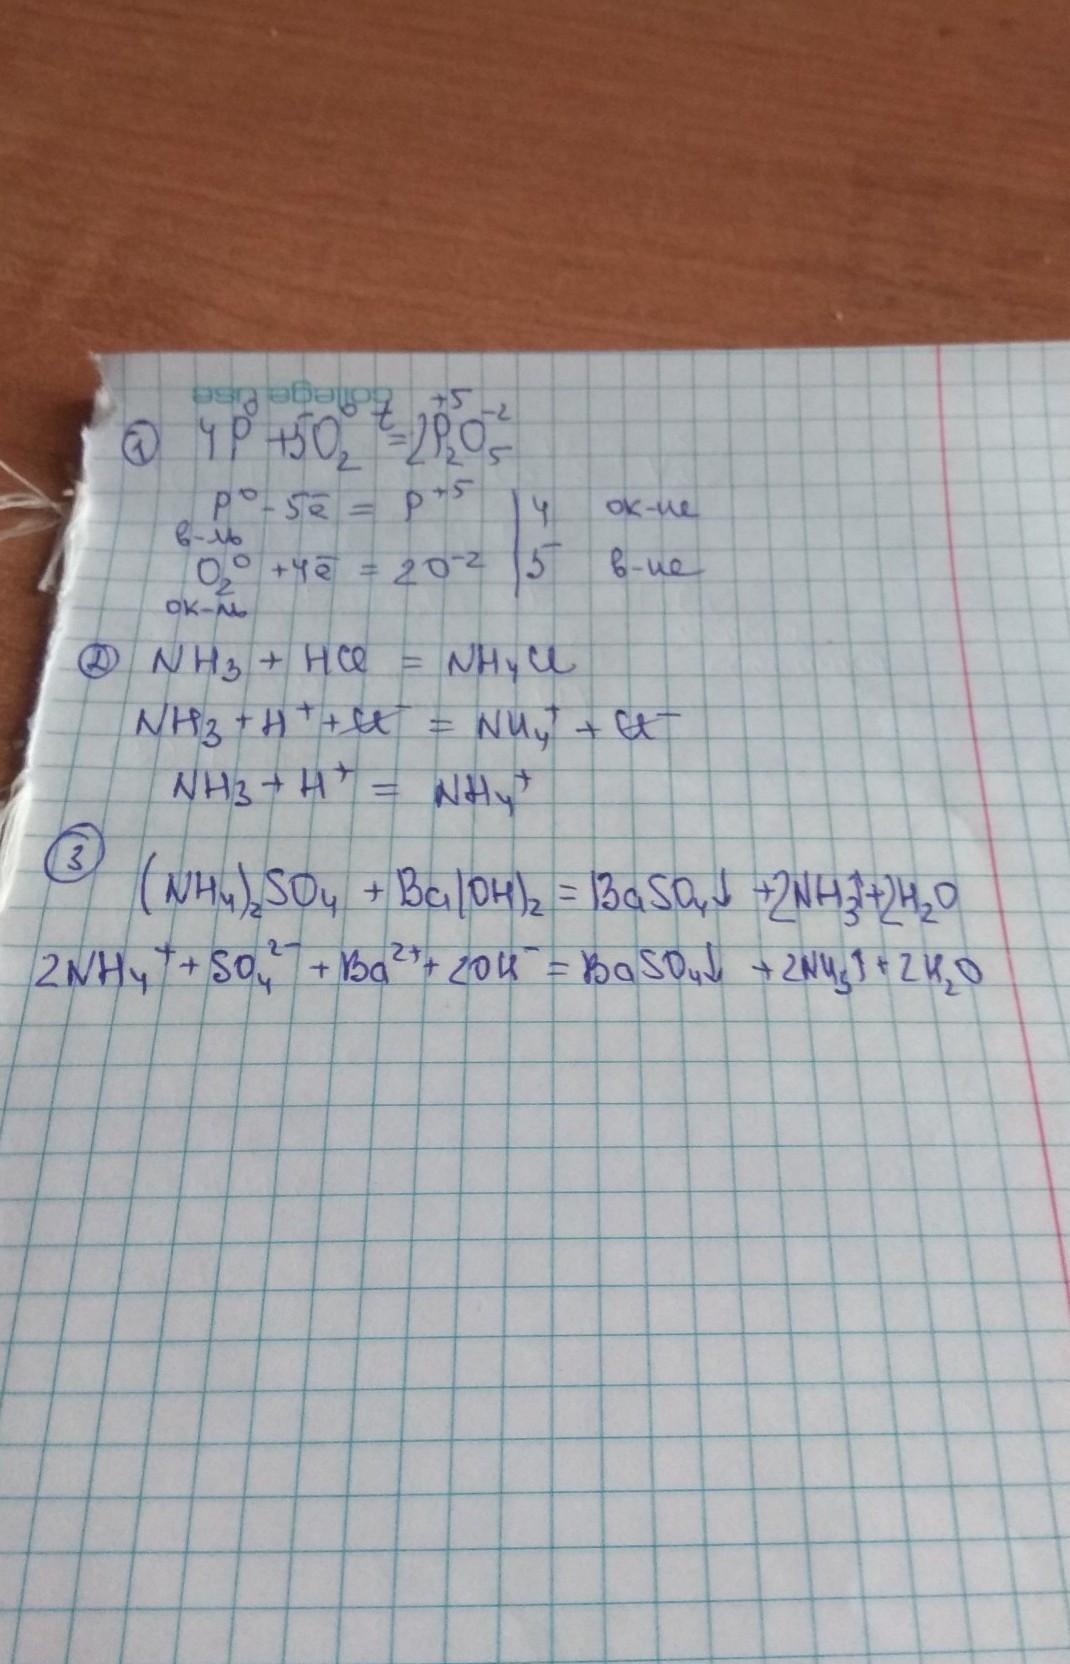 College Rule
① 4P⁰ + 5O₂⁰ =ᵗ 2P₂⁺⁵O₅⁻²
P⁰ - 5ē = P⁺⁵ | 4 ок-ие
в-ль
O₂⁰ + 4ē = 2O⁻² | 5 в-ие
ок-ль
② NH₃ + HCl = NH₄Cl
NH₃ + H⁺ + Cl⁻ = NH₄⁺ + Cl⁻
NH₃ + H⁺ = NH₄⁺
③ (NH₄)₂SO₄ + Ba(OH)₂ = BaSO₄↓ + 2NH₃↑ + 2H₂O
2NH₄⁺ + SO₄²⁻ + Ba²⁺ + 2OH⁻ = BaSO₄↓ + 2NH₃↑ + 2H₂O